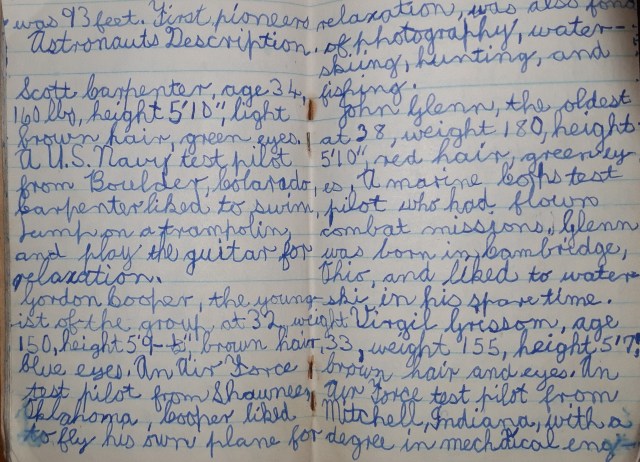 was 93 feet. First pioneers
Astronauts Description.
Scott Carpenter, age 34,
160 lbs, height 5'10", light
brown hair, green eyes.
A U.S. Navy test pilot
from Boulder, Colarado,
Carpenter liked to swim,
jump on a trampolin,
and play the guitar for
relaxation.
Gordon Cooper, the young-
ist of the group, at 32, weight
150, height 5'9- ", brown hair
blue eyes. An Air Force
test pilot from Shawnees,
Oklahoma, Cooper liked
to fly his own plane for
relaxation, was also fond
of photography, water-
skiing, hunting, and
fishing.
John Glenn, the oldest
at 38, weight 180, height
5'10", red hair, green ey-
es, A marine Corps test
pilot who had flown
combat missions, Glenn
was born in Cambridge,
Ohio, and liked to water
ski in his spare time.
Virgil Grissom, age
33, weight 155, height 5'7",
brown hair and eyes. An
Air Force test pilot from
Mitchell, Indiana, with a
degree in mechaical eng-